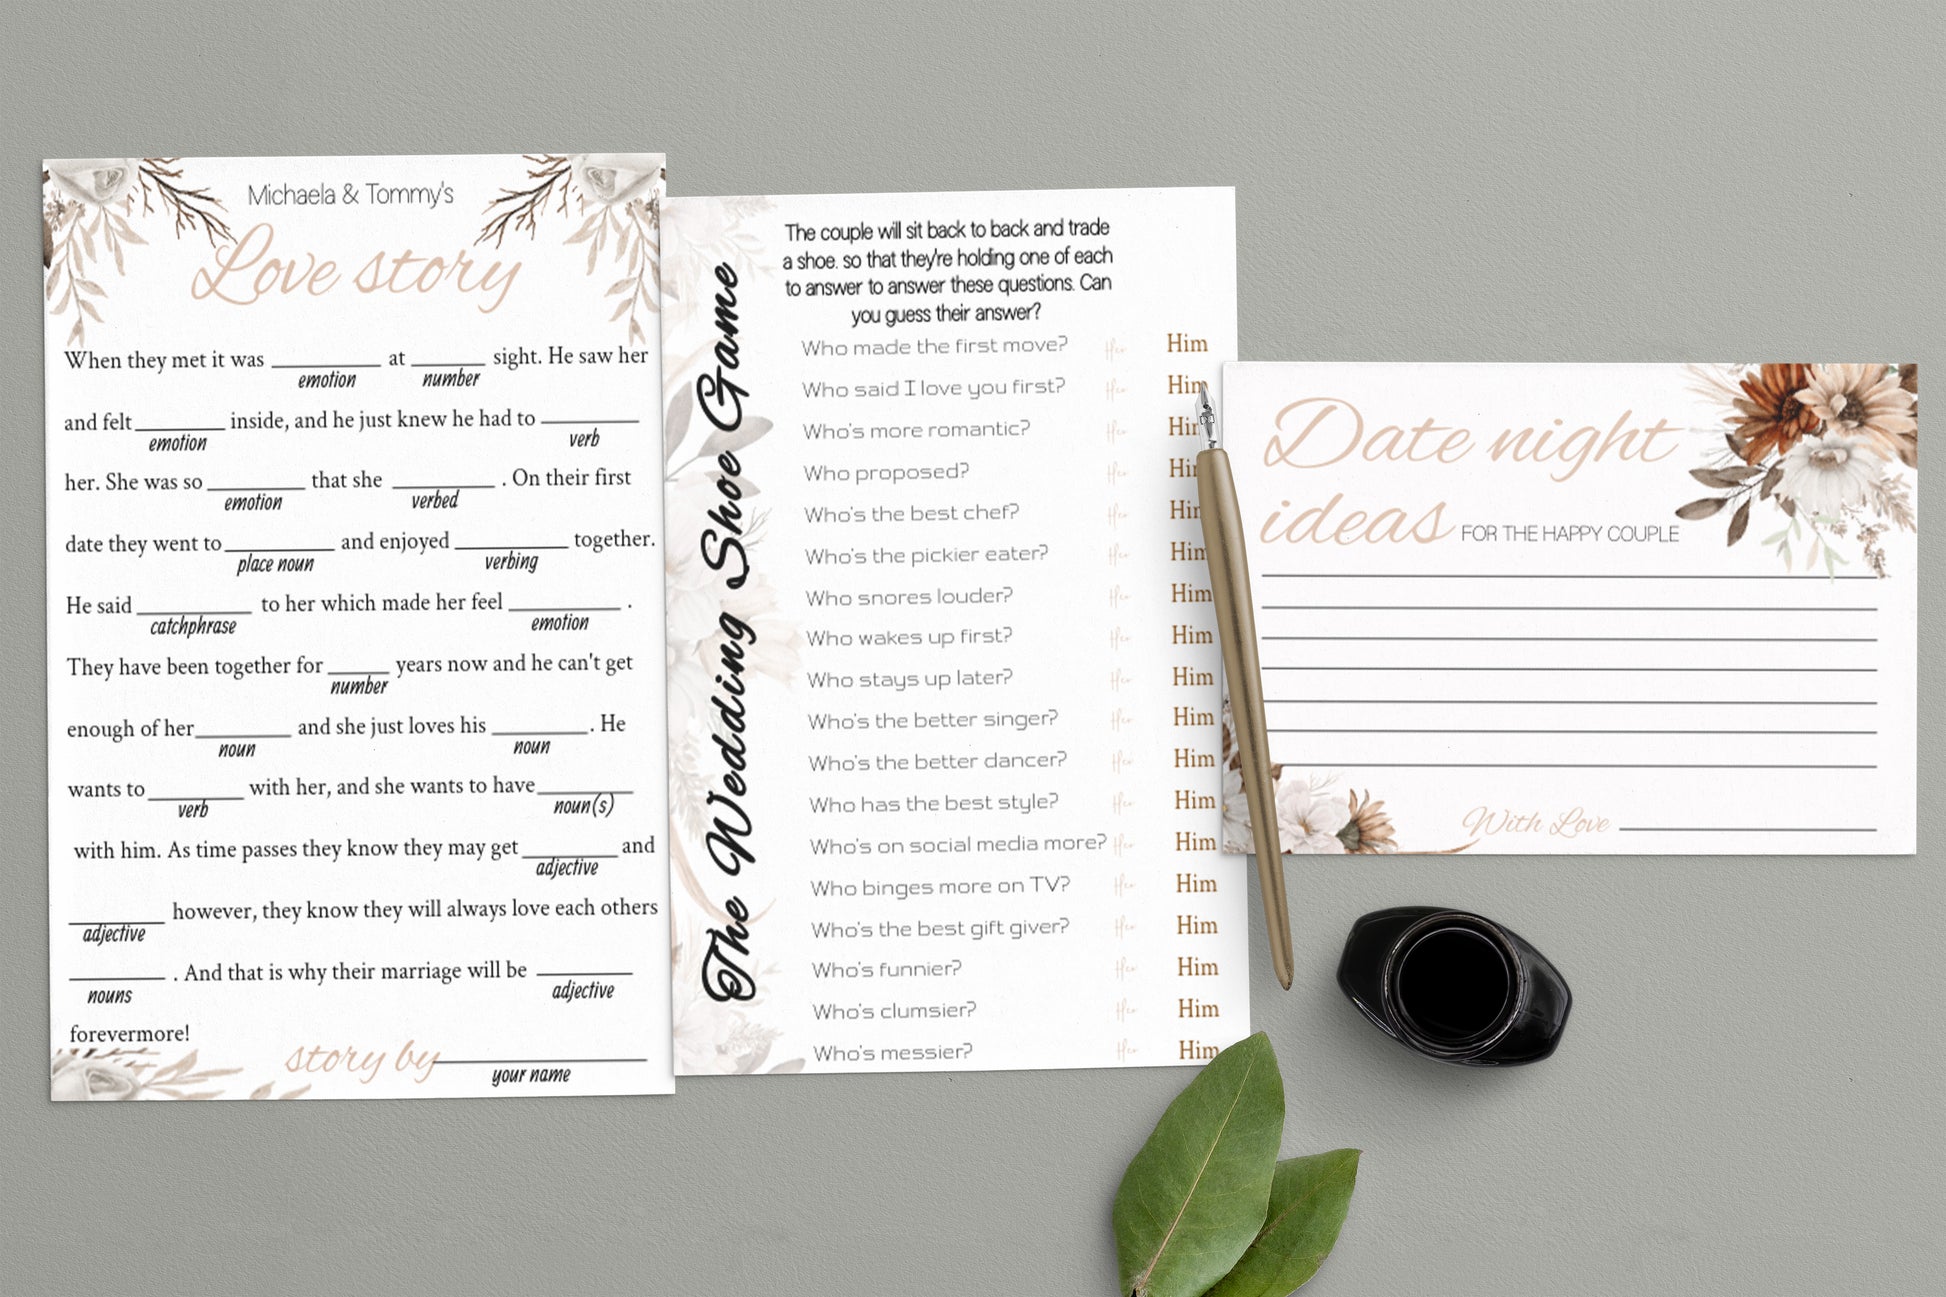 Michaela & Tommy's
Love story
When they met it was ________ at ______ sight. He saw her
emotion number
and felt ________ inside, and he just knew he had to ________
emotion verb
her. She was so ________ that she ________ . On their first
emotion verbed
date they went to ________ and enjoyed ________ together.
place noun verbing
He said ________ to her which made her feel ________ .
catchphrase emotion
They have been together for _____ years now and he can't get
number
enough of her ________ and she just loves his ________. He
noun noun
wants to ________ with her, and she wants to have ________
verb noun(s)
with him. As time passes they know they may get ________ and
adjective
________ however, they know they will always love each others
adjective
________ . And that is why their marriage will be ________
nouns adjective
forevermore!
story by ________
your name
The Wedding Shoe Game
The couple will sit back to back and trade
a shoe. so that they're holding one of each
to answer to answer these questions. Can
you guess their answer?
Who made the first move? Her Him
Who said I love you first? Her Him
Who's more romantic? Her Him
Who proposed? Her Him
Who's the best chef? Her Him
Who's the pickier eater? Her Him
Who snores louder? Her Him
Who wakes up first? Her Him
Who stays up later? Her Him
Who's the better singer? Her Him
Who's the better dancer? Her Him
Who has the best style? Her Him
Who's on social media more? Her Him
Who binges more on TV? Her Him
Who's the best gift giver? Her Him
Who's funnier? Her Him
Who's clumsier? Her Him
Who's messier? Her Him
Date night
ideas FOR THE HAPPY COUPLE
With Love ________